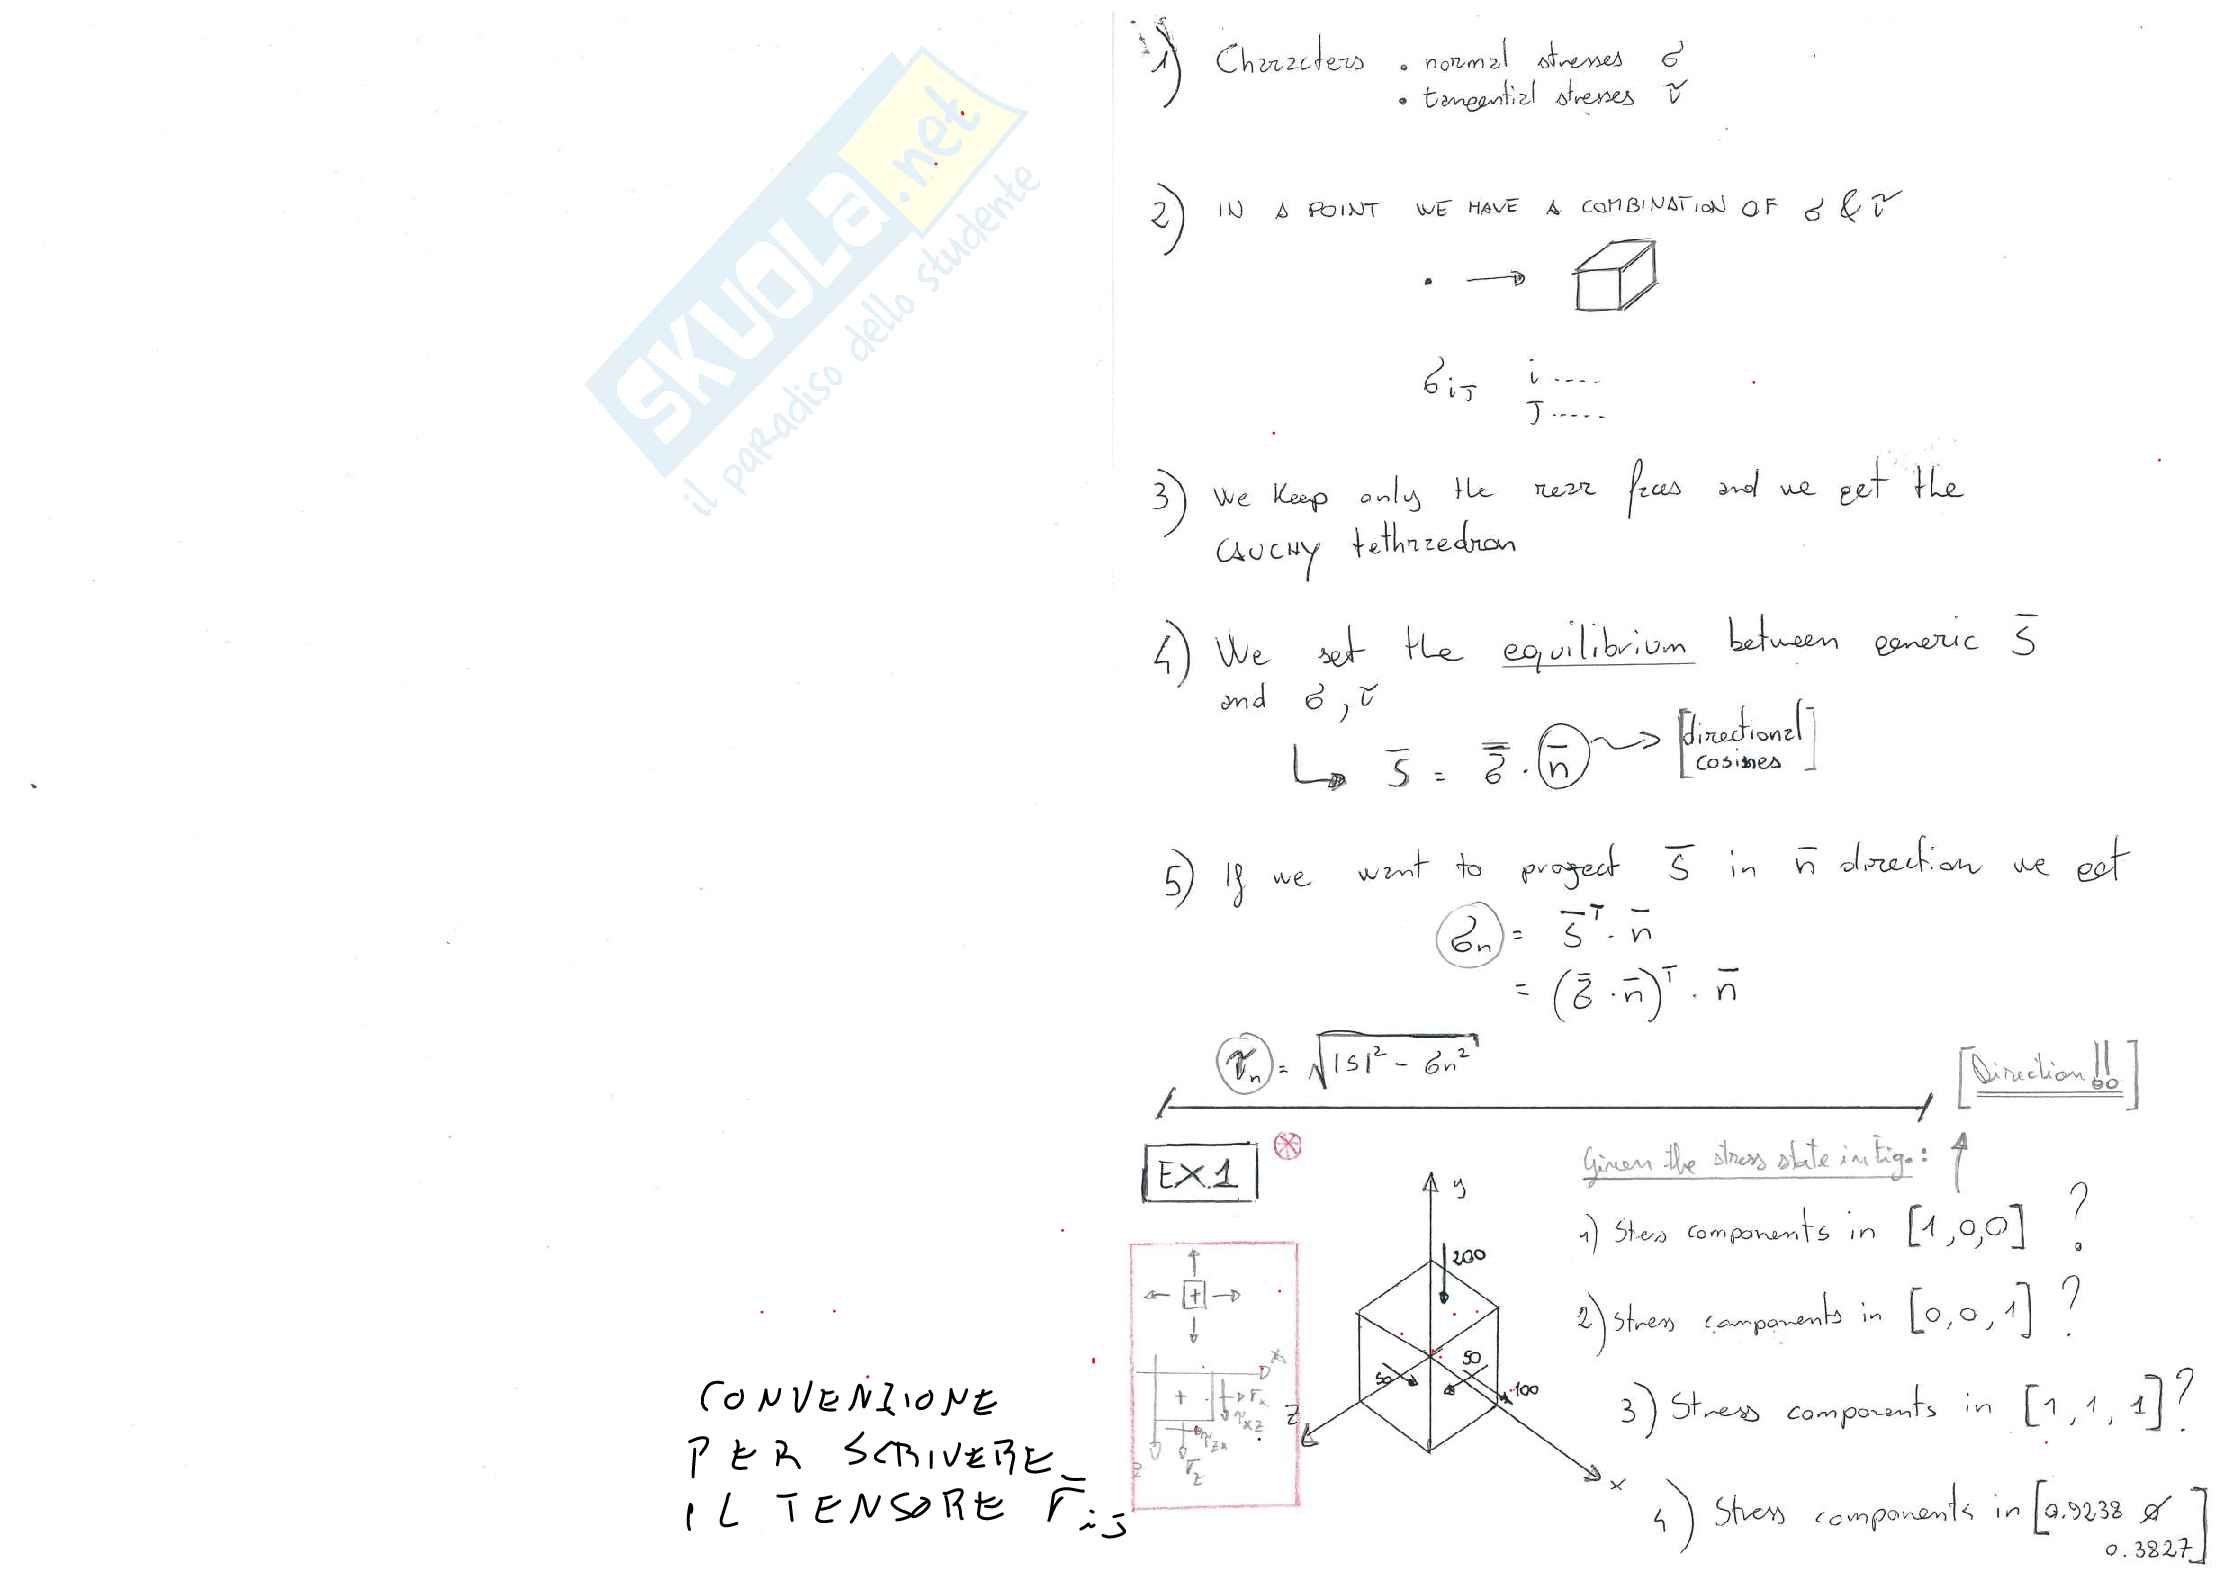 SKUOLA.net
il paRadiso dello studente
1) Characters • normal stresses σ
• tangential stresses τ
2) IN A POINT WE HAVE A COMBINATION OF σ & τ
σiJ i ....
J .....
3) We keep only the rear faces and we get the
CAUCHY tethraedron
4) We set the equilibrium between generic S̄
and σ, τ
S̄ = σ̿ · n̄ → [directional
cosines]
5) If we want to progect S̄ in n̄ direction we get
σn = S̄ᵀ · n̄
= (σ̿ · n̄)ᵀ · n̄
τn = √|S|² - σn²
[Direction!!]
EX.1
Given the stress state in fig.:
1) Stess components in [1,0,0] ?
2) Stress components in [0,0,1] ?
3) Stress components in [1,1,1] ?
4) Stress components in [0.9238 0
0.3827]
y
200
50
50
100
z
x
+
x
+
σx
τxz
τzx
σz
z
CONVENZIONE
PER SCRIVERE
IL TENSORE σ̄ij